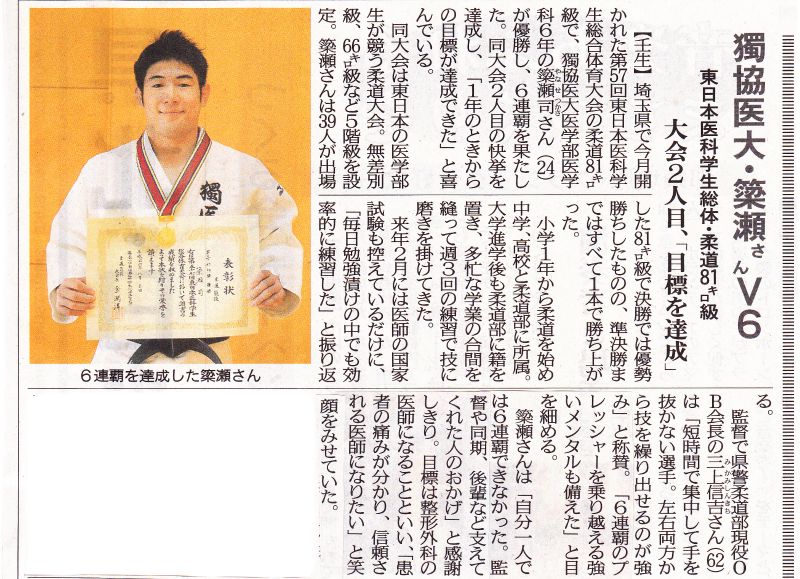 獨協医大・簗瀬さんV6
東日本医科学生総体・柔道81㌔級
大会2人目、「目標を達成」
【壬生】埼玉県で今月開
かれた第57回東日本医科学
生総合体育大会の柔道81㌔
級で、獨協医大医学部医学
科6年の簗瀬司さん(24)
が優勝し、6連覇を果たし
た。同大会2人目の快挙を
達成し、「1年のときから
の目標が達成できた」と喜
んでいる。
同大会は東日本の医学部
生が競う柔道大会。無差別
級、66㌔級など5階級を設
定。簗瀬さんは39人が出場
した81㌔級で決勝では優勢
勝ちしたものの、準決勝ま
ではすべて1本で勝ち上が
った。
小学1年から柔道を始め
中学、高校と柔道部に所属。
大学進学後も柔道部に籍を
置き、多忙な学業の合間を
縫って週3回の練習で技に
磨きを掛けてきた。
来年2月には医師の国家
試験も控えているだけに、
「毎日勉強漬けの中でも効
率的に練習した」と振り返
る。
監督で県警柔道部現役O
B会長の三上信吉さん(62)
は「短時間で集中して手を
抜かない選手。左右両方か
ら技を繰り出せるのが強
み」と称賛。「6連覇のプ
レッシャーを乗り越える強
いメンタルも備えた」と目
を細める。
簗瀬さんは「自分一人で
は6連覇できなかった。監
督や同期、後輩など支えて
くれた人のおかげ」と感謝
しきり。目標は整形外科の
医師になることといい、「患
者の痛みが分かり、信頼さ
れる医師になりたい」と笑
顔をみせていた。
獨医
表彰状
6連覇を達成した簗瀬さん